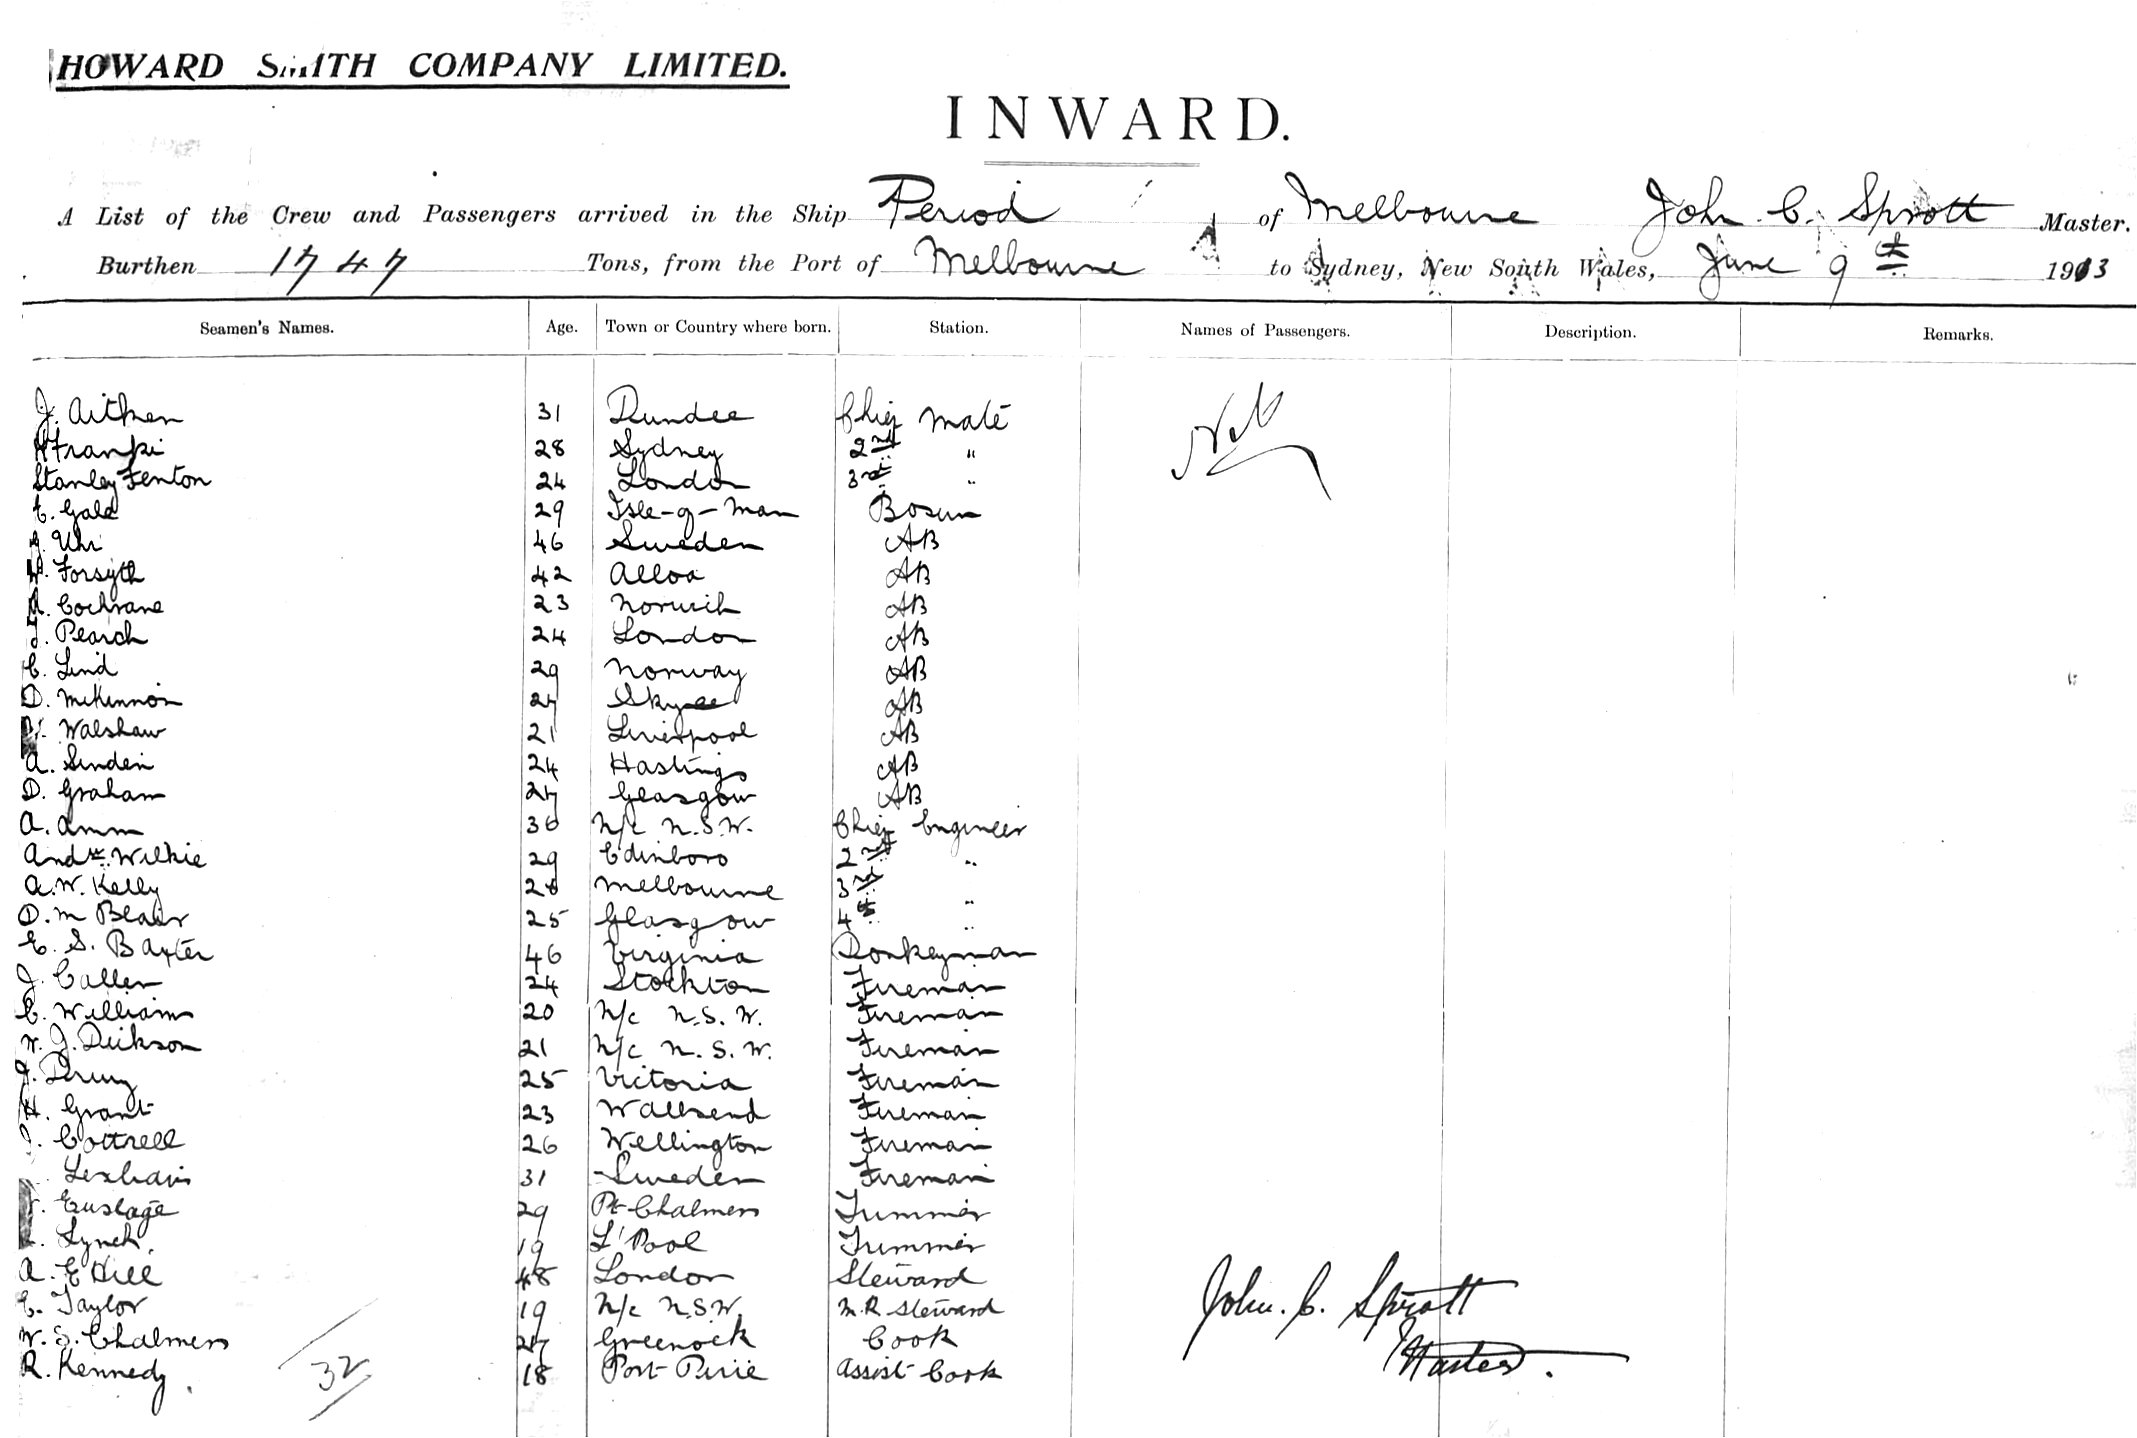 HOWARD SMITH COMPANY LIMITED.
INWARD.
A List of the Crew and Passengers arrived in the Ship Period of Melbourne John C. Sprott Master.
Burthen 1747 Tons, from the Port of Melbourne to Sydney, New South Wales, June 9th 1913
Seamen's Names. Age. Town or Country where born. Station. Names of Passengers. Description. Remarks.
J. Aitken 31 Dundee Chief Mate Nil
H Franki 28 Sydney 2nd "
Stanley Fenton 24 London 3rd "
E. Gale 29 Isle-of-Man Bosun
Uhr 46 Sweden AB
W. Forsyth 42 Alloa AB
A. Cochrane 23 Norwich AB
J. Pearch 24 London AB
C. Lind 29 Norway AB
D. McKinnon 27 Skye AB
Walshaw 21 Liverpool AB
A. Sinden 24 Hastings AB
D. Graham 27 Glasgow AB
A. Amm 36 N/c N.S.W. Chief Engineer
Andw. Wilkie 29 Edinboro 2nd "
A. W. Kelly 28 Melbourne 3rd "
D. M Blair 25 Glasgow 4th "
E. S. Baxter 46 Virginia Donkeyman
J. Callen 24 Stockton Fireman
C. Williams 20 N/c N.S.W. Fireman
W. J. Dickson 21 N/c N.S.W. Fireman
J. Drury 25 Victoria Fireman
H. Grant 23 Wallsend Fireman
J. Cottrell 26 Wellington Fireman
31 Sweden Fireman
Euslage 29 Pt Chalmers Trimmer
Lynch 19 L'Pool Trimmer
A. E Hill 48 London Steward
E. Taylor 19 N/c N.S.W. M.R Steward
W. S. Chalmers 27 Greenock Cook
R. Kennedy 18 Port Pirie Assist Cook
32
John. C. Sprott
Master.